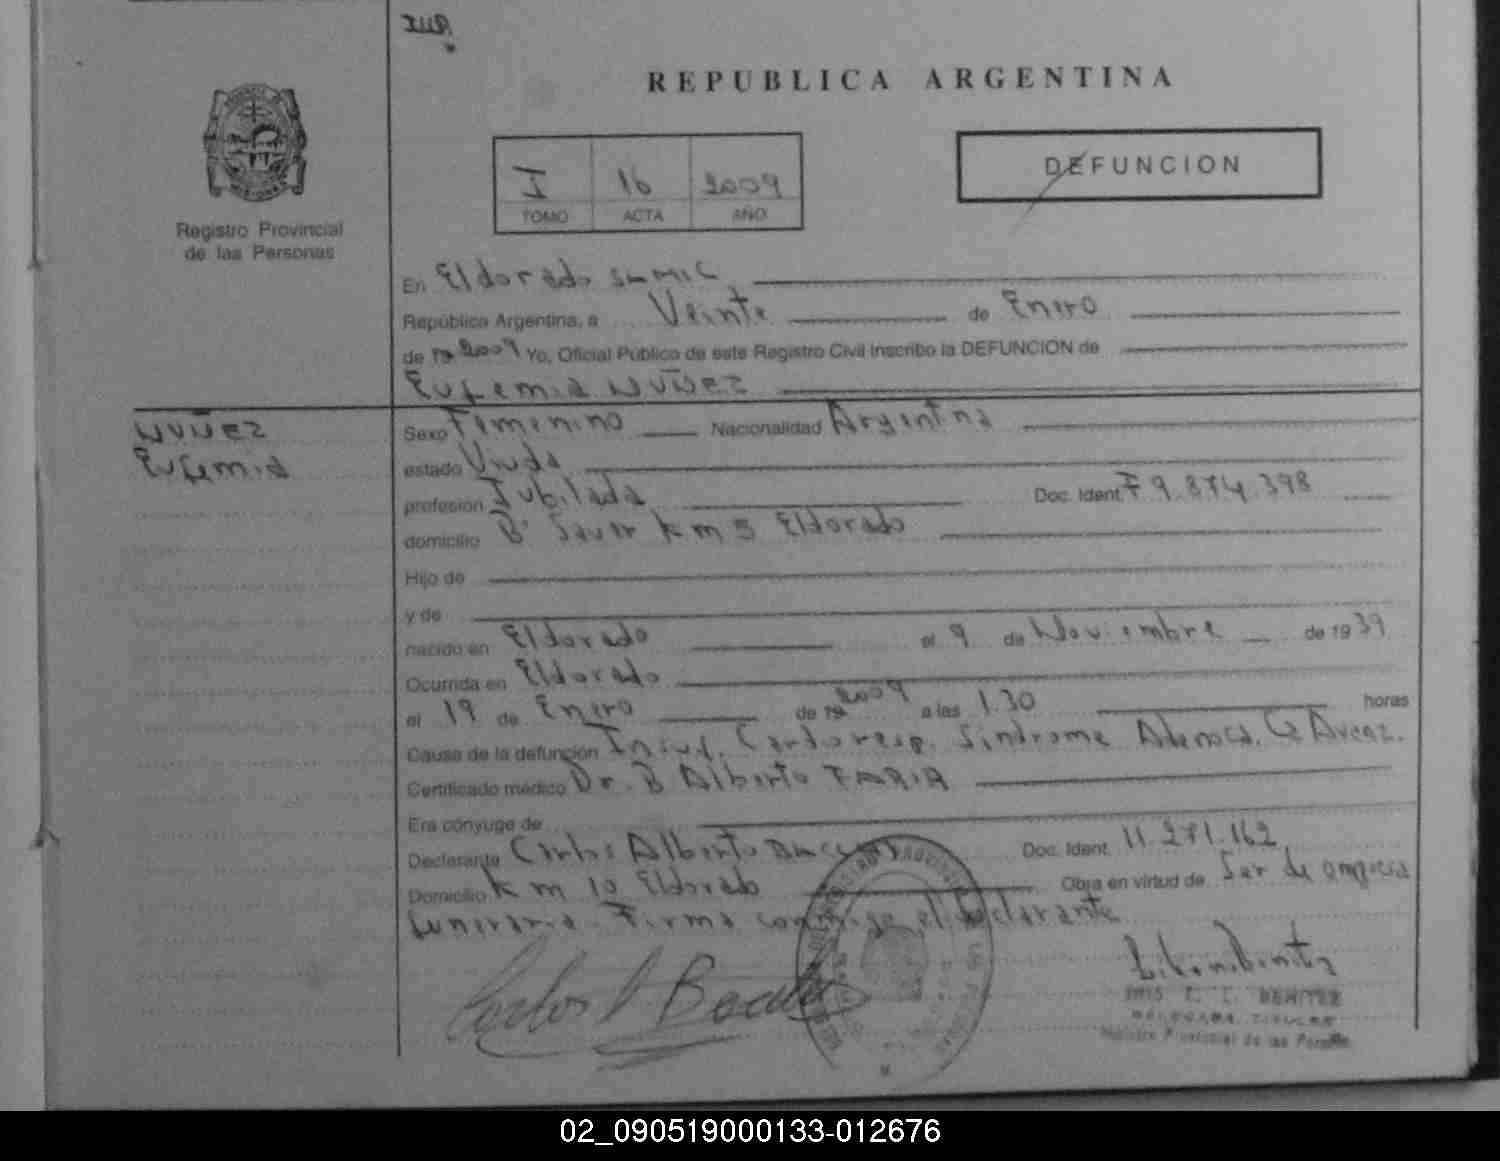 REPUBLICA ARGENTINA
I 16 2009
TOMO ACTA AÑO
DEFUNCION
Registro Provincial
de las Personas
En Eldorado
República Argentina, a Veinte de Enero
de 19 2009 Yo, Oficial Público de este Registro Civil inscribo la DEFUNCION de
Eufemia Nuñez
Nuñez
Eufemia
Sexo Femenino Nacionalidad Argentina
estado Viuda
profesión Jubilada Doc. Ident. F 9.874.398
domicilio Bº km 5 Eldorado
Hijo de
y de
nacido en Eldorado el 9 de Noviembre de 1939
Ocurrida en Eldorado
el 19 de Enero de 19 2009 a las 1.30 horas
Causa de la defunción Insuf. Cardioresp. Sindrome
Certificado médico Dr. B Alberto FARIA
Era cónyuge de
Declarante Carlos Alberto Doc. Ident. 11.271.162
Domicilio km 10 Eldorado Obra en virtud de Ser de empresa
funeraria. Firma conmigo el declarante
Carlos
BENITEZ
Registro Provincial de las Personas
02_090519000133-012676